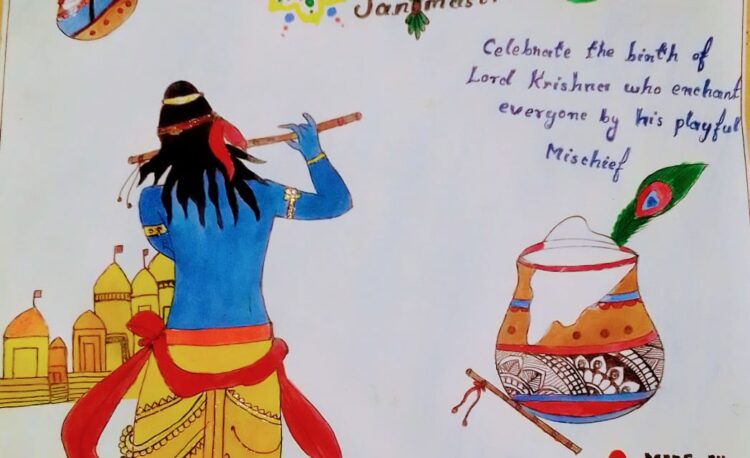 Janmas
Celebrate the birth of
Lord Krishna who enchant
everyone by his playful
Mischief